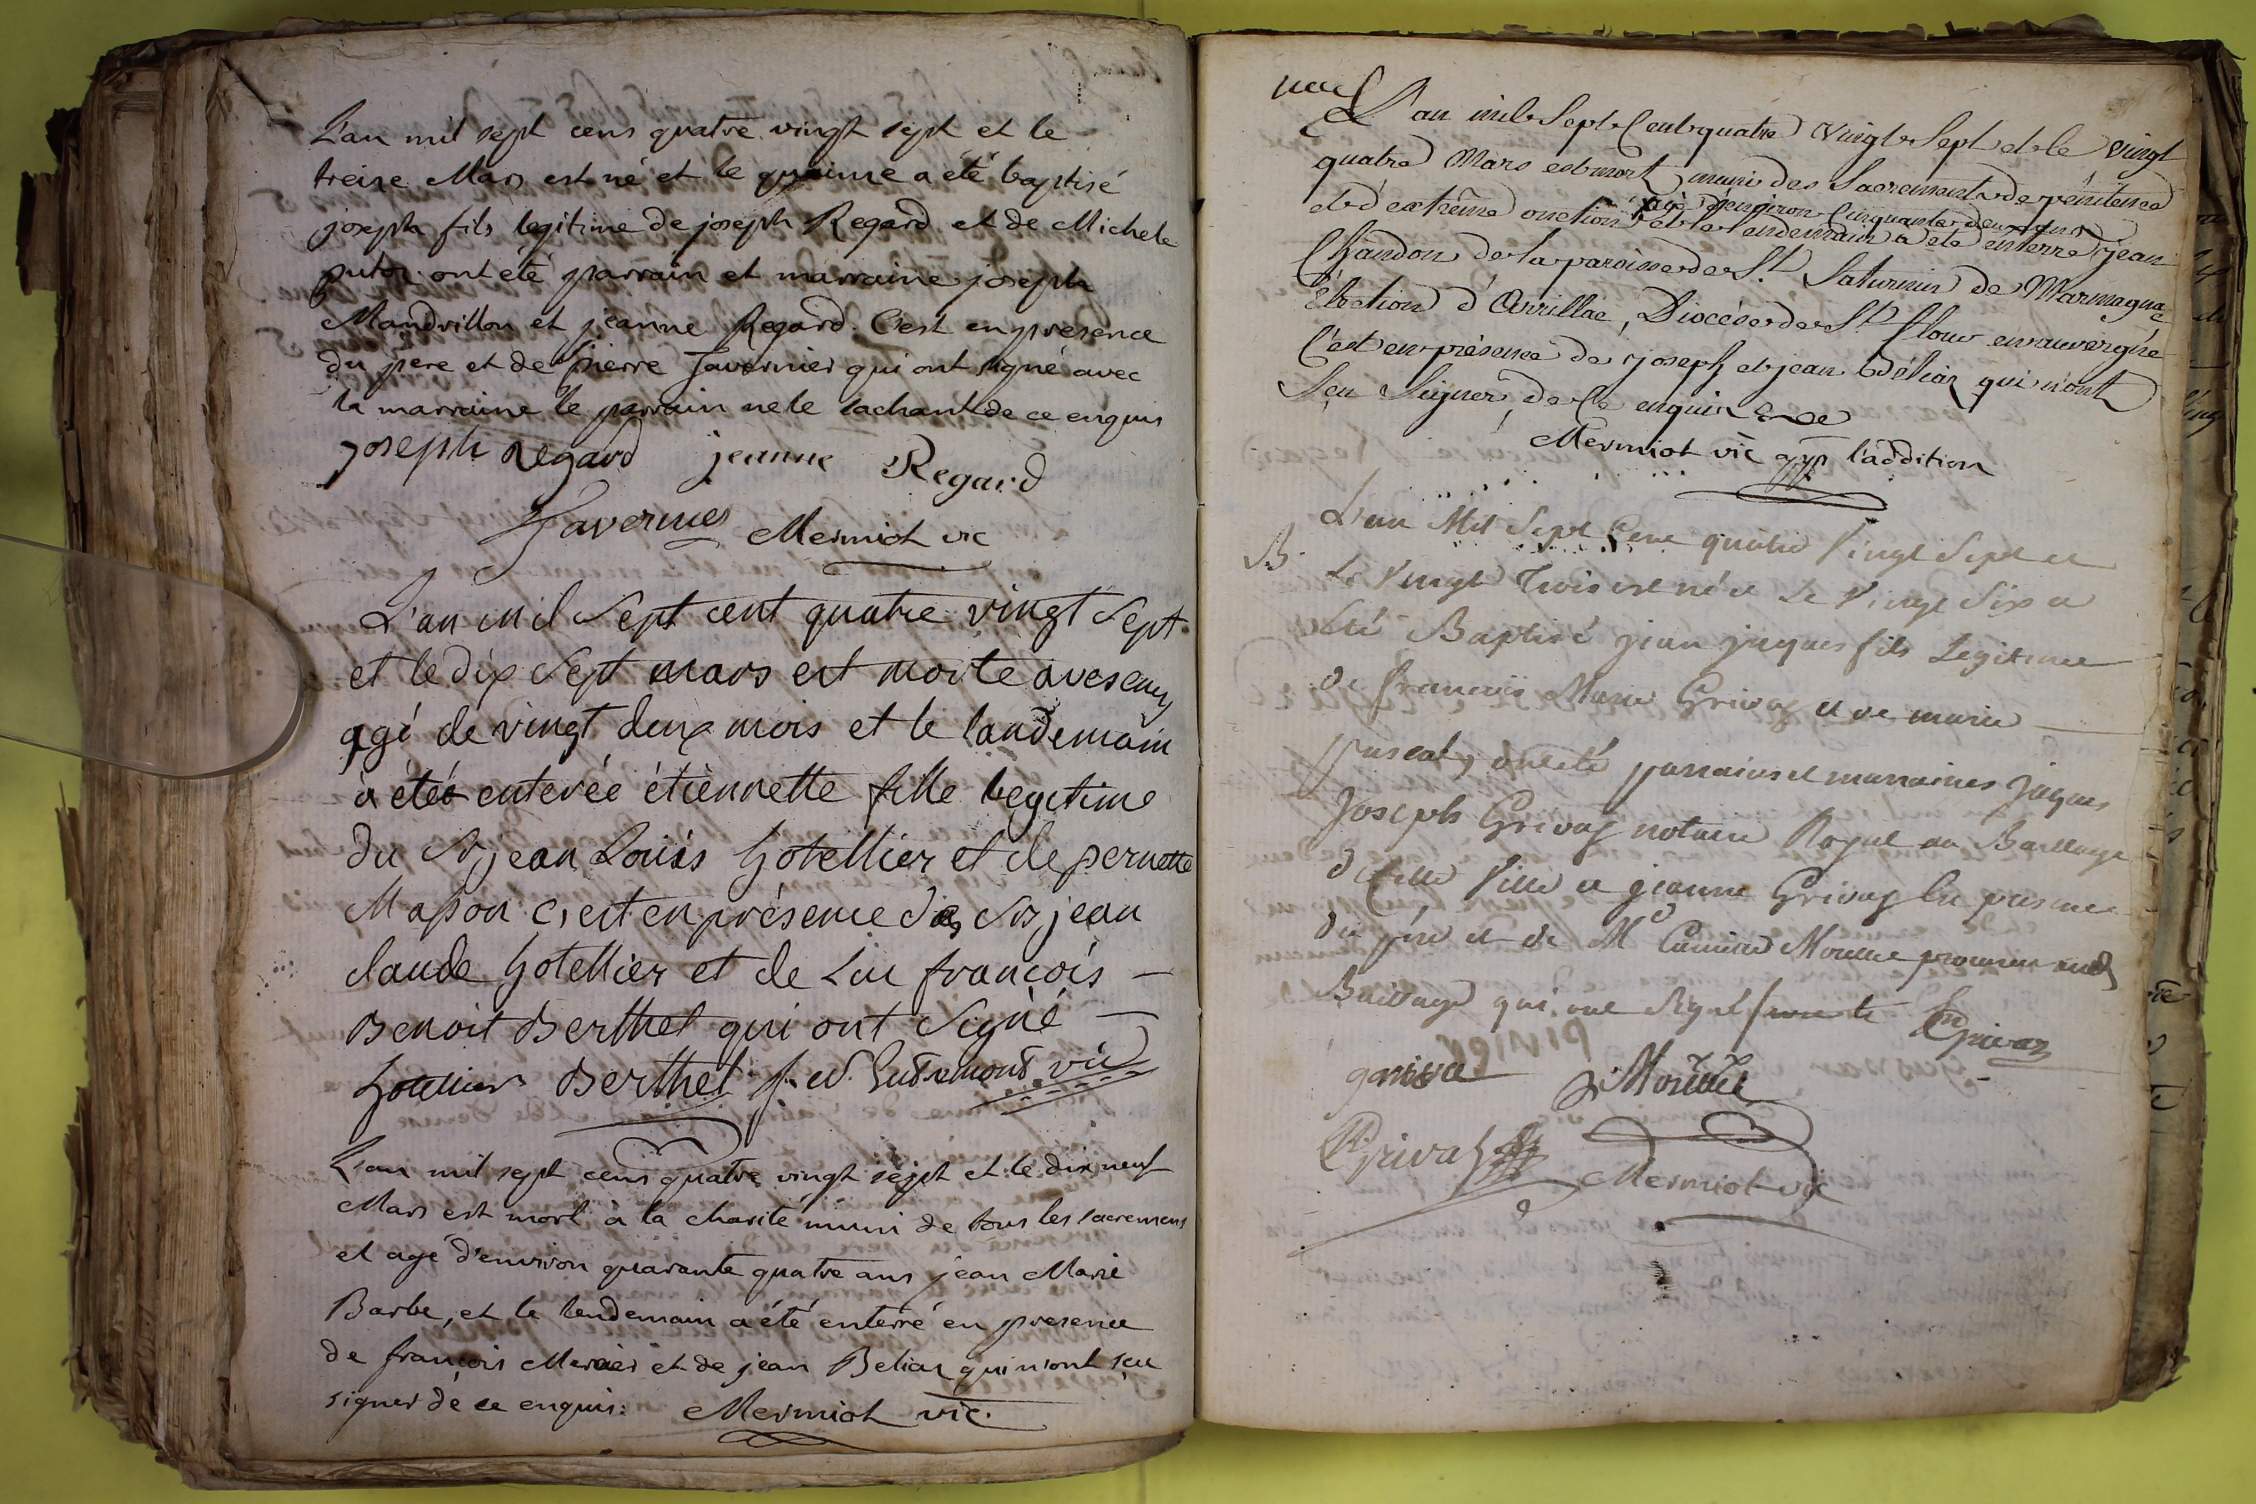 L'an mil sept cens quatre vingt sept et le
treize Mars est né et le quinze a été baptisé
joseph fils legitime de joseph Regard et de Michele
putoz ont été parrain et marraine joseph
Mandrillon et jeanne Regard. C'est en presence
du pere et de pierre Javernier qui ont signé avec
la marraine le parrain ne le sachant de ce enquis
joseph Regard jeanne Regard
Mermiot vic
L'an mil sept cent quatre vingt sept
et le dix sept mars est morte
agé de vingt deux mois et le landemain
a été enterée étiennette fille legitime
du Sr jean Louis hotellier et de pernette
Masson c'est en présence des Srs jean
claude hotellier et de Luc françois
Benoit Berthet qui ont signé
hotellier Berthet vic
L'an mil sept cens quatre vingt sept et le dix neuf
Mars est mort à la charité muni de tous les sacremens
et agé d'environ quarante quatre ans jean Marie
Barbe, et le lendemain a été enterré en presence
de françois Mercier et de jean Beliaz qui n'ont sçu
signer de ce enquis. Mermiot vic.
L'an mil Sept Cent quatre Vingt Sept et le vingt
quatre Mars est mort muni des Sacrements de pénitence
agé d'environ Cinquante deux ans
et d'extrême onction et le lendemain a été enterré jean
Chandon de la paroisse de St. Saturnin de Marmagnac
Élection d'Avrillac, Diocése de St. flour en auvergne
C'est en présence de joseph et jean Béliaz qui n'ont
Sçu Signer de Ce enquis
Mermiot vic l'addition
B.
L'an Mil Sept Cent quatre Vingt Sept et
Le Vingt Trois est né et Le Vingt Six a
été Baptisé jean jaques fils Legitime
de françois Marie Grivaz et de marie
ont été parrains et marraines jaques
joseph Grivaz notaire Royal au Bailliage
de Cette Ville et jeanne Grivaz En presence
du père et de Me procureur audt
Bailliage qui ont Signé
Grivaz
Grivaz
Mermiot vic